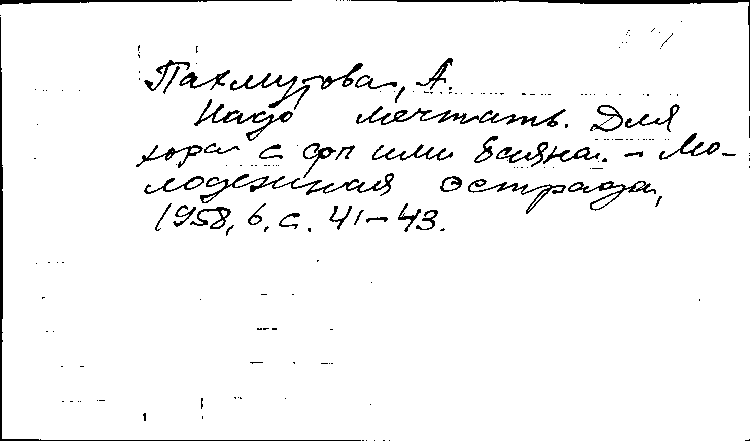 Пахмутова, А.
Надо мечтать. Для
хора с фп или баяна. – Мо-
лодежная эстрада,
1958, 6, с. 41–43.